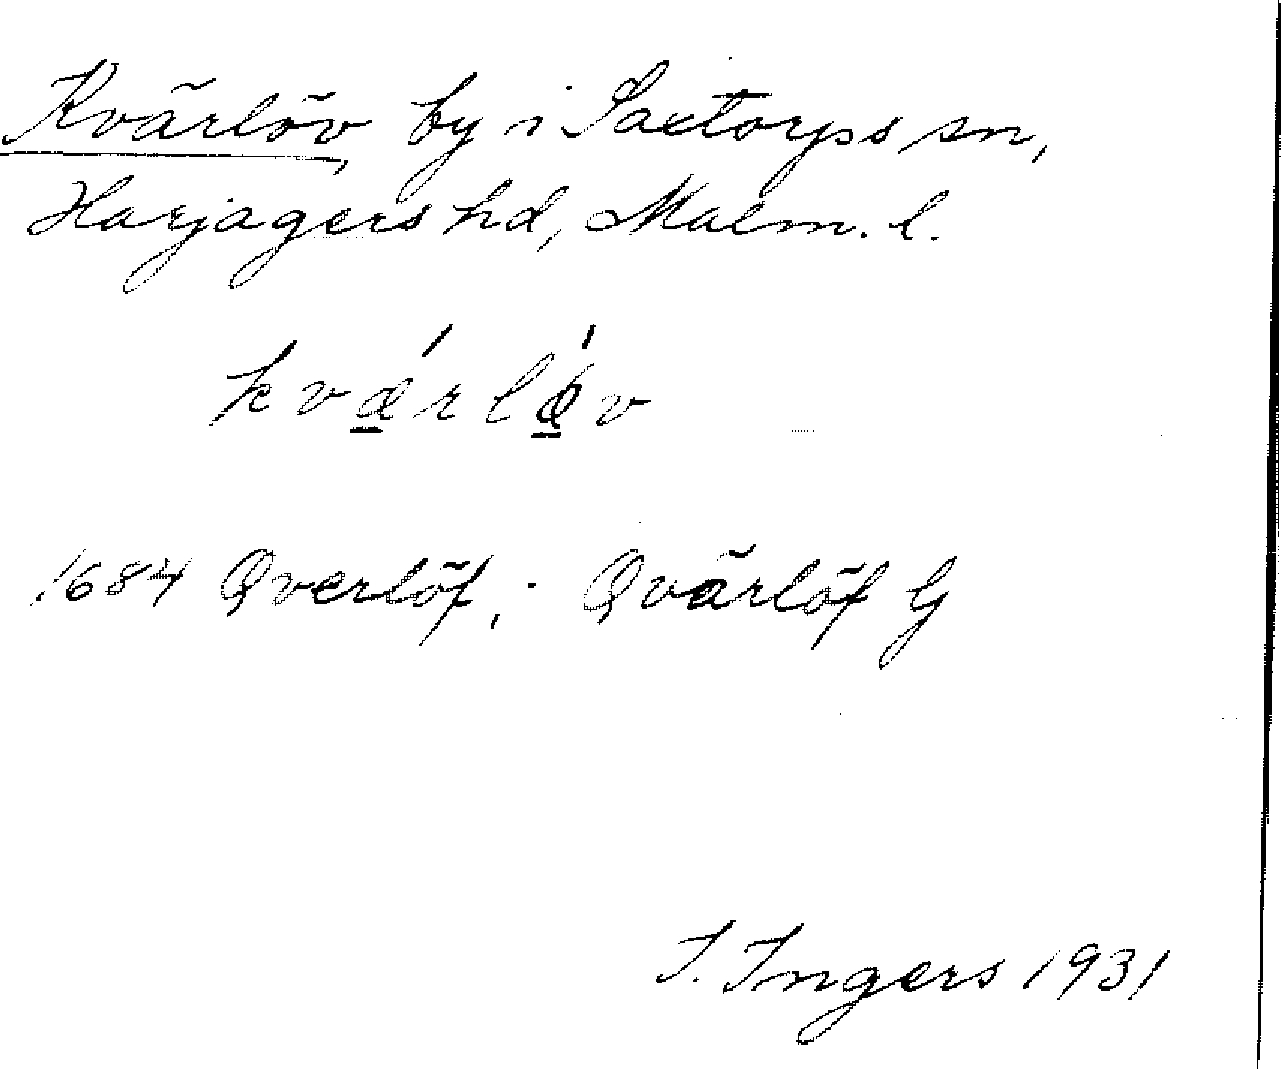 Kvärlöv, by i Saxtorps sn,
Harjagers hd, Malm. l.
kvǽrlǿv
1684 Qverlöf; Qvärlöf G
I. Ingers 1931